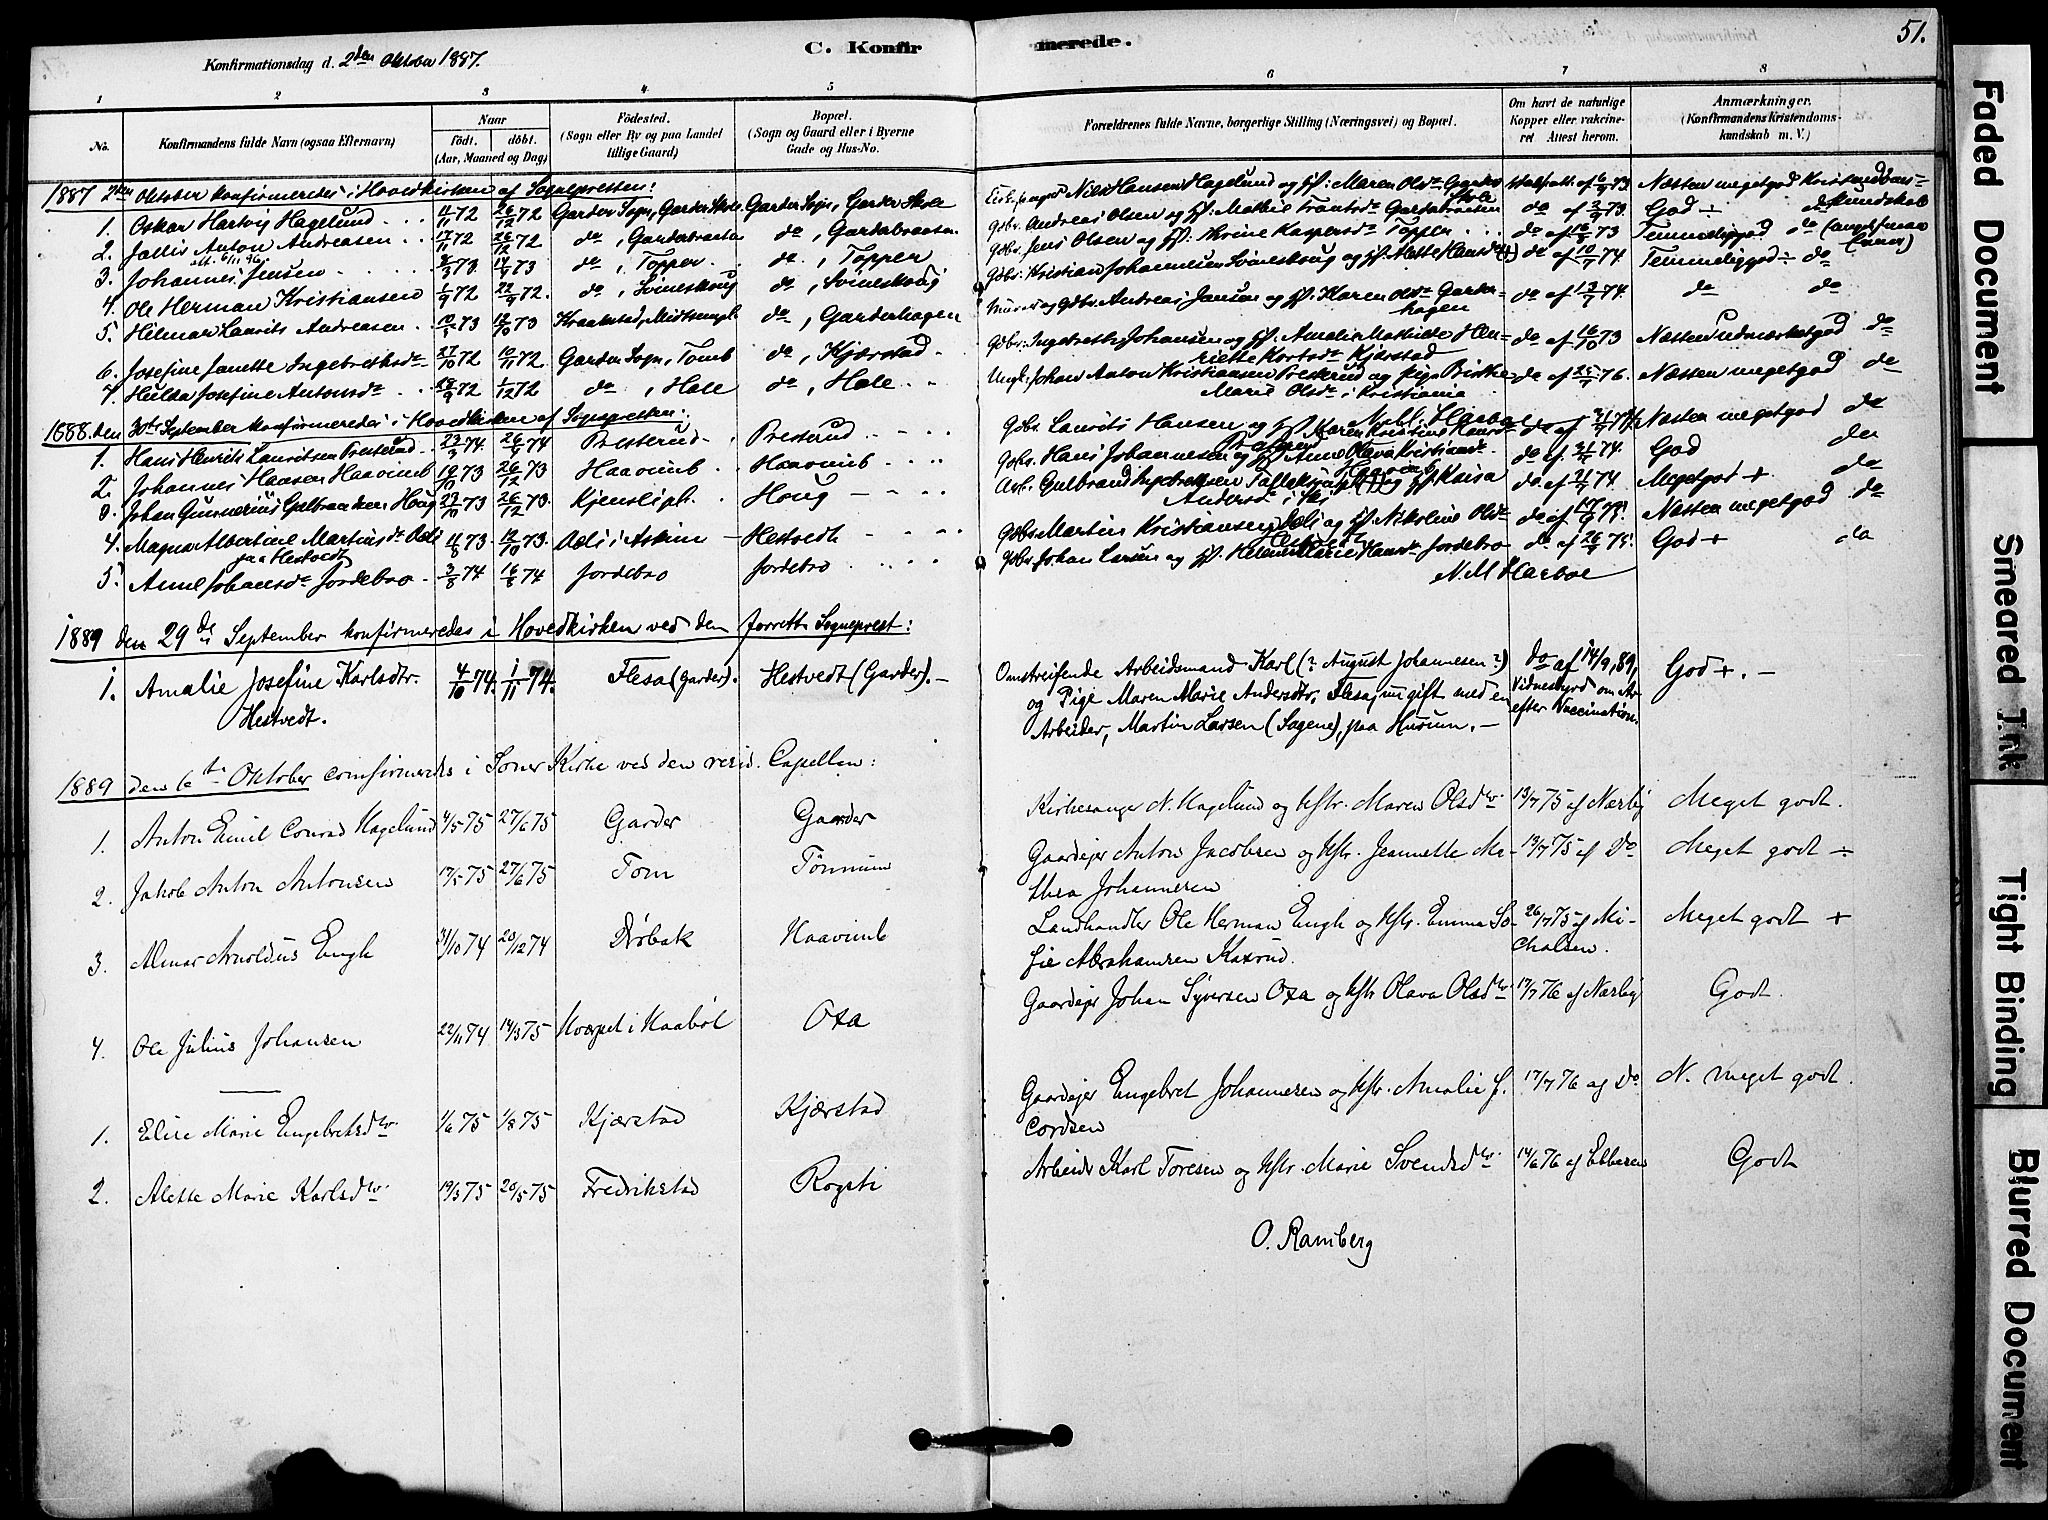 51.
Konfirmationsdag d. 2den Oktober 1887.
C. Konfirmerede.
1 2 3 4 5 6 7 8
No.
Konfirmandens fulde Navn (ogsaa Efternavn)
Naar
födt. döbt.
(Aar, Maaned og Dag)
Födested.
(Sogn eller By og paa Landet
tillige Gaard)
Bopæl.
(Sogn og Gaard eller i Byerne
Gade og Hus-No.
Forældrenes fulde Navne, borgerlige Stilling (Næringsvei) og Bopæl.
Om havt de naturlige
Kopper eller vakcine-
ret Attest herom.
Anmærkninger.
(Konfirmandens Kristendoms-
kundskab m. V.)
1887 2den Oktober konfirmeredes i Hovedkirken af Sognepresten:
1. Oskar Hartvig Hagelund 4/11 72 26/12 72 Garder Sogn, Garder Skole Garder Sogn, Garder Skole Niels Hansen Hagelund og Maren Olsdr Garder Skole Næsten megetgod Kristendoms-
2. Anton Andreasen 17/11 72 26/12 72 do, Garderbraaten do, Garderbraaten Gbr. Andreas Olsen og do af 2/9 73 God ÷ do kundskab
3. Johannes Jensen 73 14/4 73 do, Topper do, Topper Gbr. Jens Olsen og Karine Kaspersdr Topper do af 16/8 73 Temmeliggod do
4. Ole Herman Kristiansen 1/9 72 22/9 72 do, Svineskoug do, Svineskoug Gbr. Kristian Johannesen Svineskoug og do af 10/7 74 Temmeliggod ÷ do
5. Hilmar Laurits Andreasen 73 12/10 73 Kraakstad, do, Garderhagen Murer og Gbr. Andreas Jansen og Karen Olsdr Garder-
hagen do af 13/7 74. do do
6. Josefine Janette Ingebrethsdr 27/10 72 10/11 72 Garder Sogn, Tomb do, Kjærstad Gbr. Ingebreth Johansen og Amalie Mathilde Hen-
riette Kortsdr Kjærstad do af 16/10 73 Næsten udmærketgod do
7. Hulda Josefine Antonsdr 72 1/12 72 do, Hole do, Hole Ungk. Johan Anton Kristiansen Presterud og Pige
Marie Olsdr i Kristiania 76. Næsten megetgod do
1888. den 30te September konfirmeredes i Hovedkirken af Sognepresten: N. M. Harboe
1. Hans Henrik Lauritsen Presterud 23/3 74 26/4 74 Presterud Presterud Gbr. Laurits Hansen og Maren Kristine Næsten megetgod do
2. Johannes Hansen Haavimb 19/10 73 26/12 73 Haavimb Haavimb Gbr. Hans Johannesen og Anne Olava Kristiansdr Haavimb God do
3. Johan Gunnerius Gulbrandsen Houg 29/10 73 26/12 73. Kjensliph. Houg Arb. Gulbrand Ingebretsen og Kaisa
Andersdr i Ski Megetgod + do
4. Magna Albertine Martinsdr Oeli 11/8 73 12/10 73. Oeli i Askim Hestvedt Gbr. Martin Kristiansen Oeli og Nikoline Olsdr Næsten megetgod do
paa Hestvedt
5. Anne Johansdr Jordebro 3/8 74 16/8 74 Jordebro Jordebro Gbr. Johan Larsen og Helene Marie Hansdr Jordebro do af 26/7 75. God + do
N. M Harboe
1889 den 29de September konfirmeredes i Hovedkirken ved den forrettn Sogneprest:
1. Amalie Josefine Karlsdtr. 4/10 74. 1/11 74. Flesa (Garder). Hestvedt (Garder). — Omstreifende Arbeidsmand Karl (? August Johannesen?) do af 14/9, 89, God +. —
Hestvedt. og Pige Maren Marie Andersdtr. Flesa, nu gift med en Vidnesbyrd om Ar
Arbeider, Martin Larsen (Sagene), paa Husum. — efter Vaccination.
1889 den 6te Oktober confirmeredes i Soner Kirke ved den resid. Capellan:
1. Anton Emil Conrad Hagelund 4/5 75 27/6 75 Garder Gaarder Kirkesanger N. Hagelund og Hstr. Maren Olsdtr 13/7 75 af Nærby Meget godt.
2. Jakob Anton Antonsen 17/5 75 27/6 75 Tom Tömmum Gaardejer Anton Jacobsen og Hstr. Jeannette Ma- 13/7 75 af Do Meget godt ÷
thea Johannesen
3. Almar Arnoldus Engh 31/10 74 20/12 74 Drøbak Haavimb Landhandler Ole Herman Engh og Hstr. Emma So- 26/7 75 af Mi- Meget godt +
fie Abrahamsen Kaxrud. chalsen.
4. Ole Julius Johansen 22/11 74 14/3 75 Kværpel i Haaböl Oxa Gaardejer Johan Syversen Oxa og Hstr Olava Olsdtr 17/7 76 af Nærby Godt.
1. Elise Marie Engebretsdtr 1/6 75 1/8 75 Kjærstad Kjærstad Gaardejer Engebret Johannesen og Hstr. Amalie J. 17/7 76 af Do N. meget godt.
Cordsen
2. Alette Marie Karlsdtr 19/3 75 20/5 75 Fredrikstad Rogsti Arbeider Karl Toresen og Hstr Marie Svendsdtr 14/6 76 af Ebbesen Godt
O. Ramberg
Faded Document
Smeared Ink
Tight Binding
Blurred Document